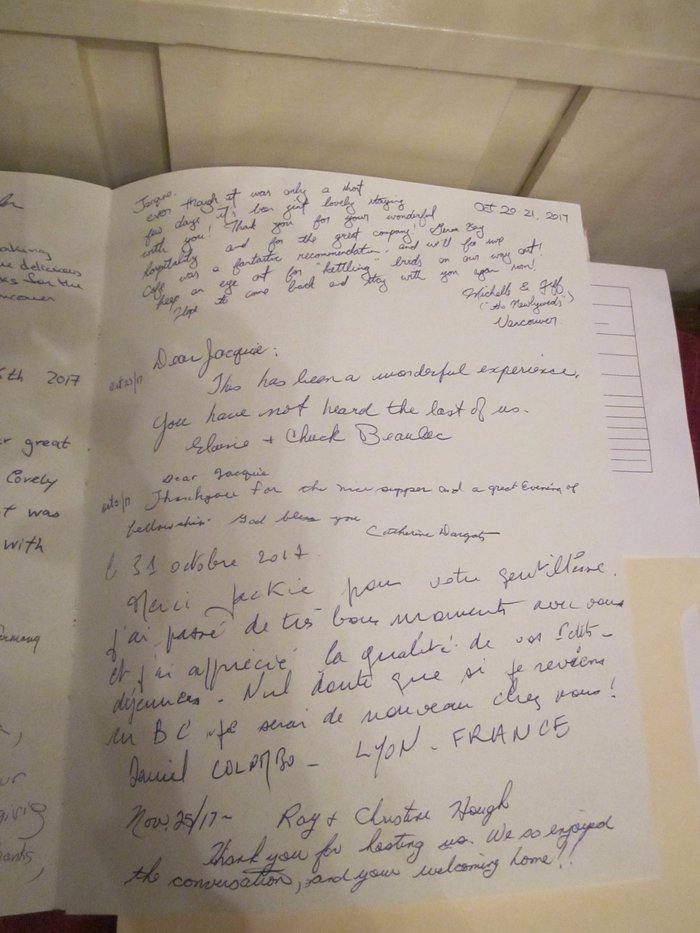 aking
delicious
ks for the
ncouver
6th 2017
r great
Lovely
t was
with
ermany
ur
giving
hanks,
Oct 20 21, 2017
Jacquie.
even though it was only a short
few days it's been just lovely staying
with you! Thank you for your wonderful
hospitality and for the great company!
Cafe was a fantastic recommendation and we'll for sure
keep an eye out for "kettling" birds on our way out!
Hope to come back and stay with you again soon!
Michelle & Jeff
("The Newlyweds")
Vancouver
Dear Jacquie:
This has been a wonderful experience.
You have not heard the last of us.
Elaine + Chuck
Dear Jacquie
Thankyou for the nice supper and a great Evening of
fellowship. God bless you
Catherine
le 31 octobre 2017.
Merci Jackie pour votre gentillesse.
J'ai passé de très bons moments avec vous
et j'ai apprécié la qualité de vos Petits-
déjeuners - Nul doute que si je reviens
en BC je serai de nouveau chez vous!
Daniel COLOMBO - LYON - FRANCE
Nov. 25/17~ Ray + Christine Hough
Thank you for hosting us. We so enjoyed
the conversation, and your welcoming home!!